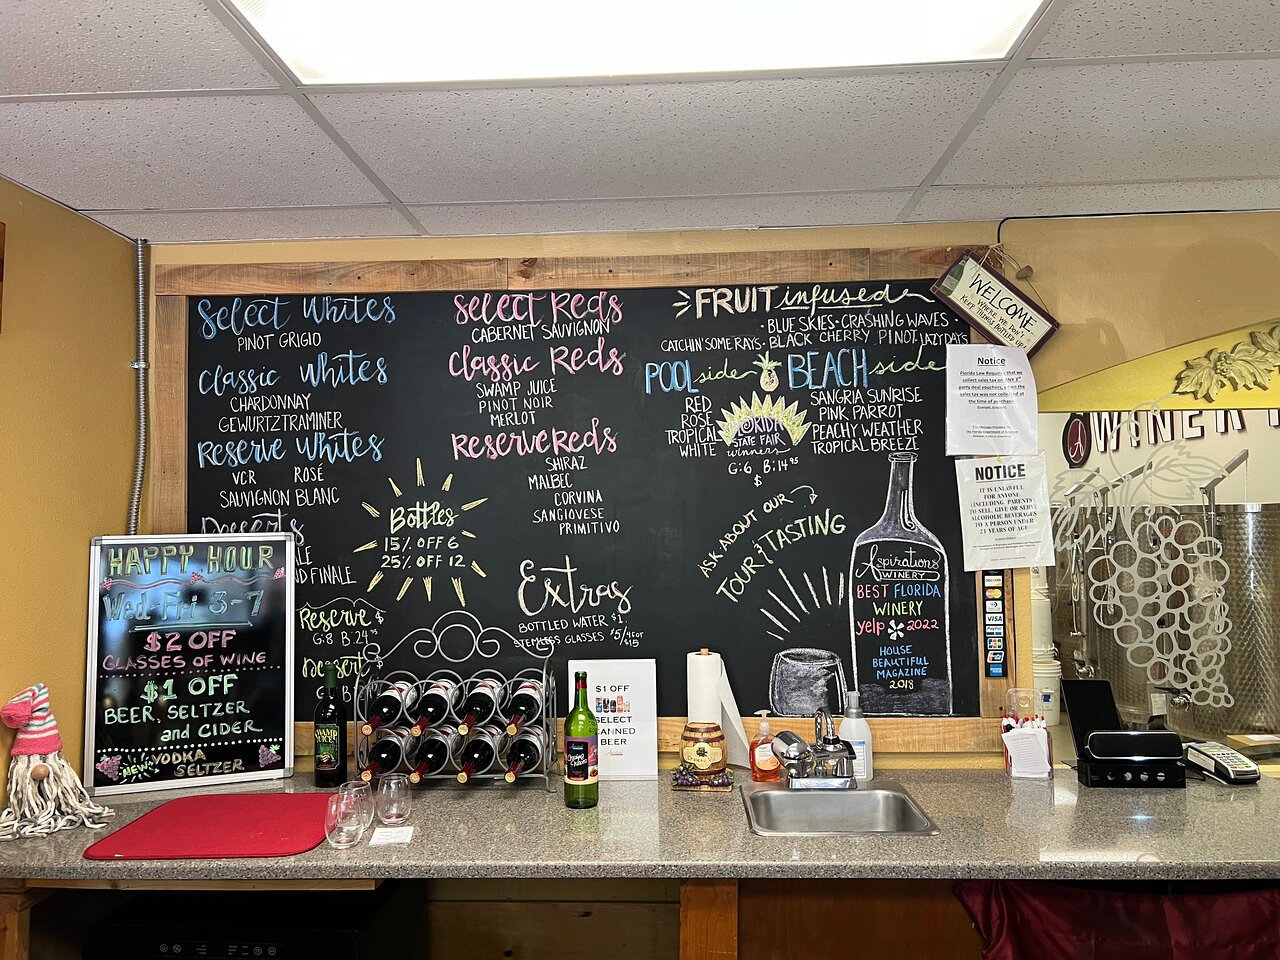 Select Whites
PINOT GRIGIO
Classic Whites
CHARDONNAY
GEWURTZTRAMINER
Reserve Whites
VCR ROSÉ
SAUVIGNON BLANC
Desserts
ND FINALE
Reserve
G:8 B:24.95
Dessert
G B
Bottles
15% OFF 6
25% OFF 12
Select Reds
CABERNET SAUVIGNON
Classic Reds
SWAMP JUICE
PINOT NOIR
MERLOT
Reserve Reds
SHIRAZ
MALBEC
CORVINA
SANGIOVESE
PRIMITIVO
Extras
BOTTLED WATER $1.
STEMLESS GLASSES $5/4 for $15
FRUIT infused
·BLUE SKIES·CRASHING WAVES·
CATCHIN' SOME RAYS· BLACK CHERRY PINOT LAZY DAYS
POOLside
RED
ROSE
TROPICAL
WHITE
BEACHside
SANGRIA SUNRISE
PINK PARROT
PEACHY WEATHER
TROPICAL BREEZE
FLORIDA
STATE FAIR
winners
G:6 B:14.95
$
ASK ABOUT OUR
TOUR & TASTING
Aspirations
WINERY
BEST FLORIDA
WINERY
yelp 2022
HOUSE
BEAUTIFUL
MAGAZINE
2018
WELCOME
WHERE WE DON'T
KEEP THINGS BOTTLED UP
Notice
Florida Law Requires that we
collect sales tax on ANY 3rd
party deal vouchers, when the
sales tax was not collected at
the time of purchase.
NOTICE
IT IS UNLAWFUL
FOR ANYONE
(INCLUDING PARENTS)
TO SELL, GIVE OR SERVE
ALCOHOLIC BEVERAGES
TO A PERSON UNDER
21 YEARS OF AGE
WINER
DISCOVER
VISA
PayPal
HAPPY HOUR
Wed-Fri 3-7
$2 OFF
GLASSES OF WINE
$1 OFF
BEER, SELTZER
and CIDER
NEW! VODKA
SELTZER
SWAMP
JUICE
$1 OFF
SELECT
CANNED
BEER